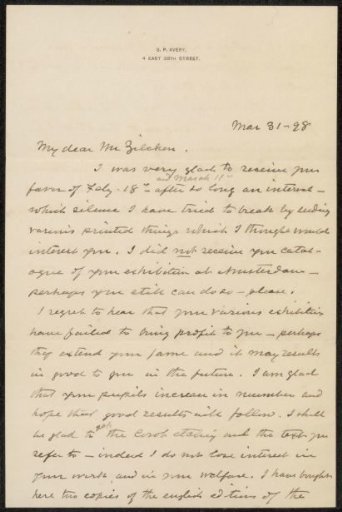 S. P. AVERY,
4 EAST 38TH STREET.
Mar 31-98
My dear Mr Zilcken.
I was very glad to receive your
and March 11th
favor of Feby. 18th after so long an interval -
which silence I have tried to break by sending
various printed things which I thought would
interest you. I did not receive your catal-
ogue of your exhibition at Amsterdam -
perhaps you still can do so - please.
I regret to hear that your various exhibitions
have failed to bring profit to you - perhaps
they extend your fame and it may results
in good to you in the future. I am glad
that your pupils increase in number and
hope that good results will follow. I shall
be glad to get the Corot etching and the text you
refer to - indeed I do not lose interest in
your work, and in your welfare. I have bought
here two copies of the english edition of the